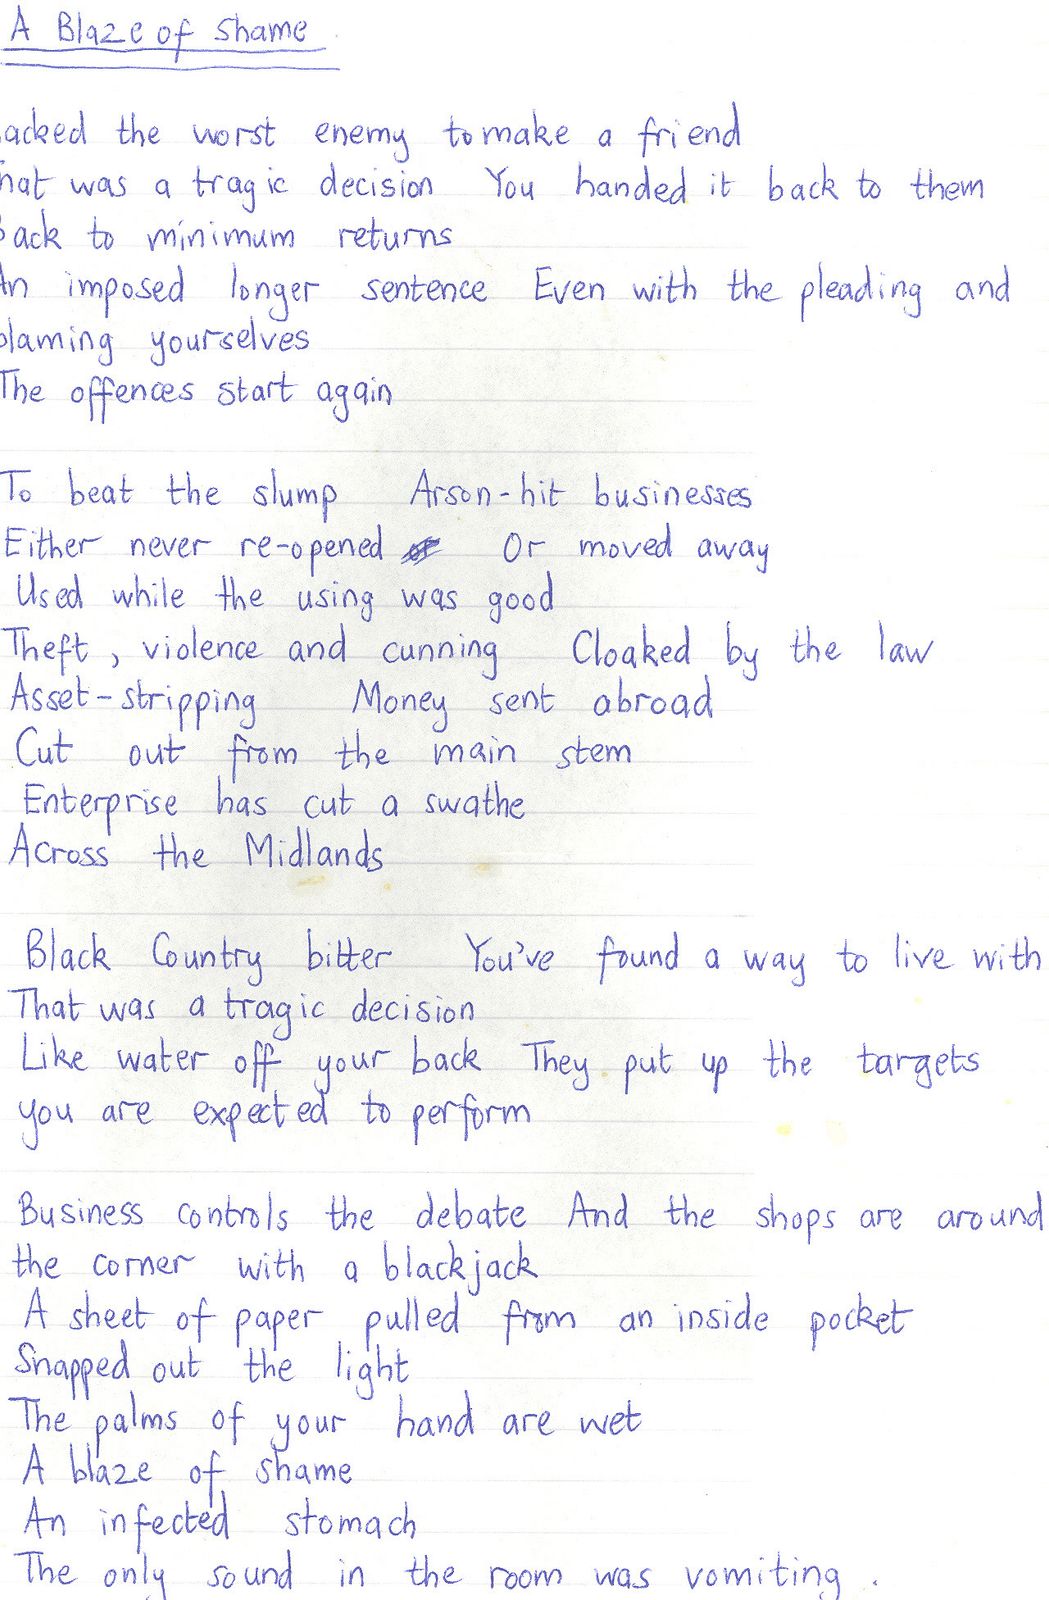 A Blaze of Shame
acked the worst enemy to make a friend
hat was a tragic decision You handed it back to them
Back to minimum returns
An imposed longer sentence Even with the pleading and
blaming yourselves
The offences start again
To beat the slump Arson-hit businesses
Either never re-opened Or moved away
Used while the using was good
Theft, violence and cunning Cloaked by the law
Asset-stripping Money sent abroad
Cut out from the main stem
Enterprise has cut a swathe
Across the Midlands
Black Country bitter You've found a way to live with
That was a tragic decision
Like water off your back They put up the targets
you are expected to perform
Business controls the debate And the shops are around
the corner with a blackjack
A sheet of paper pulled from an inside pocket
Snapped out the light
The palms of your hand are wet
A blaze of shame
An infected stomach
The only sound in the room was vomiting.